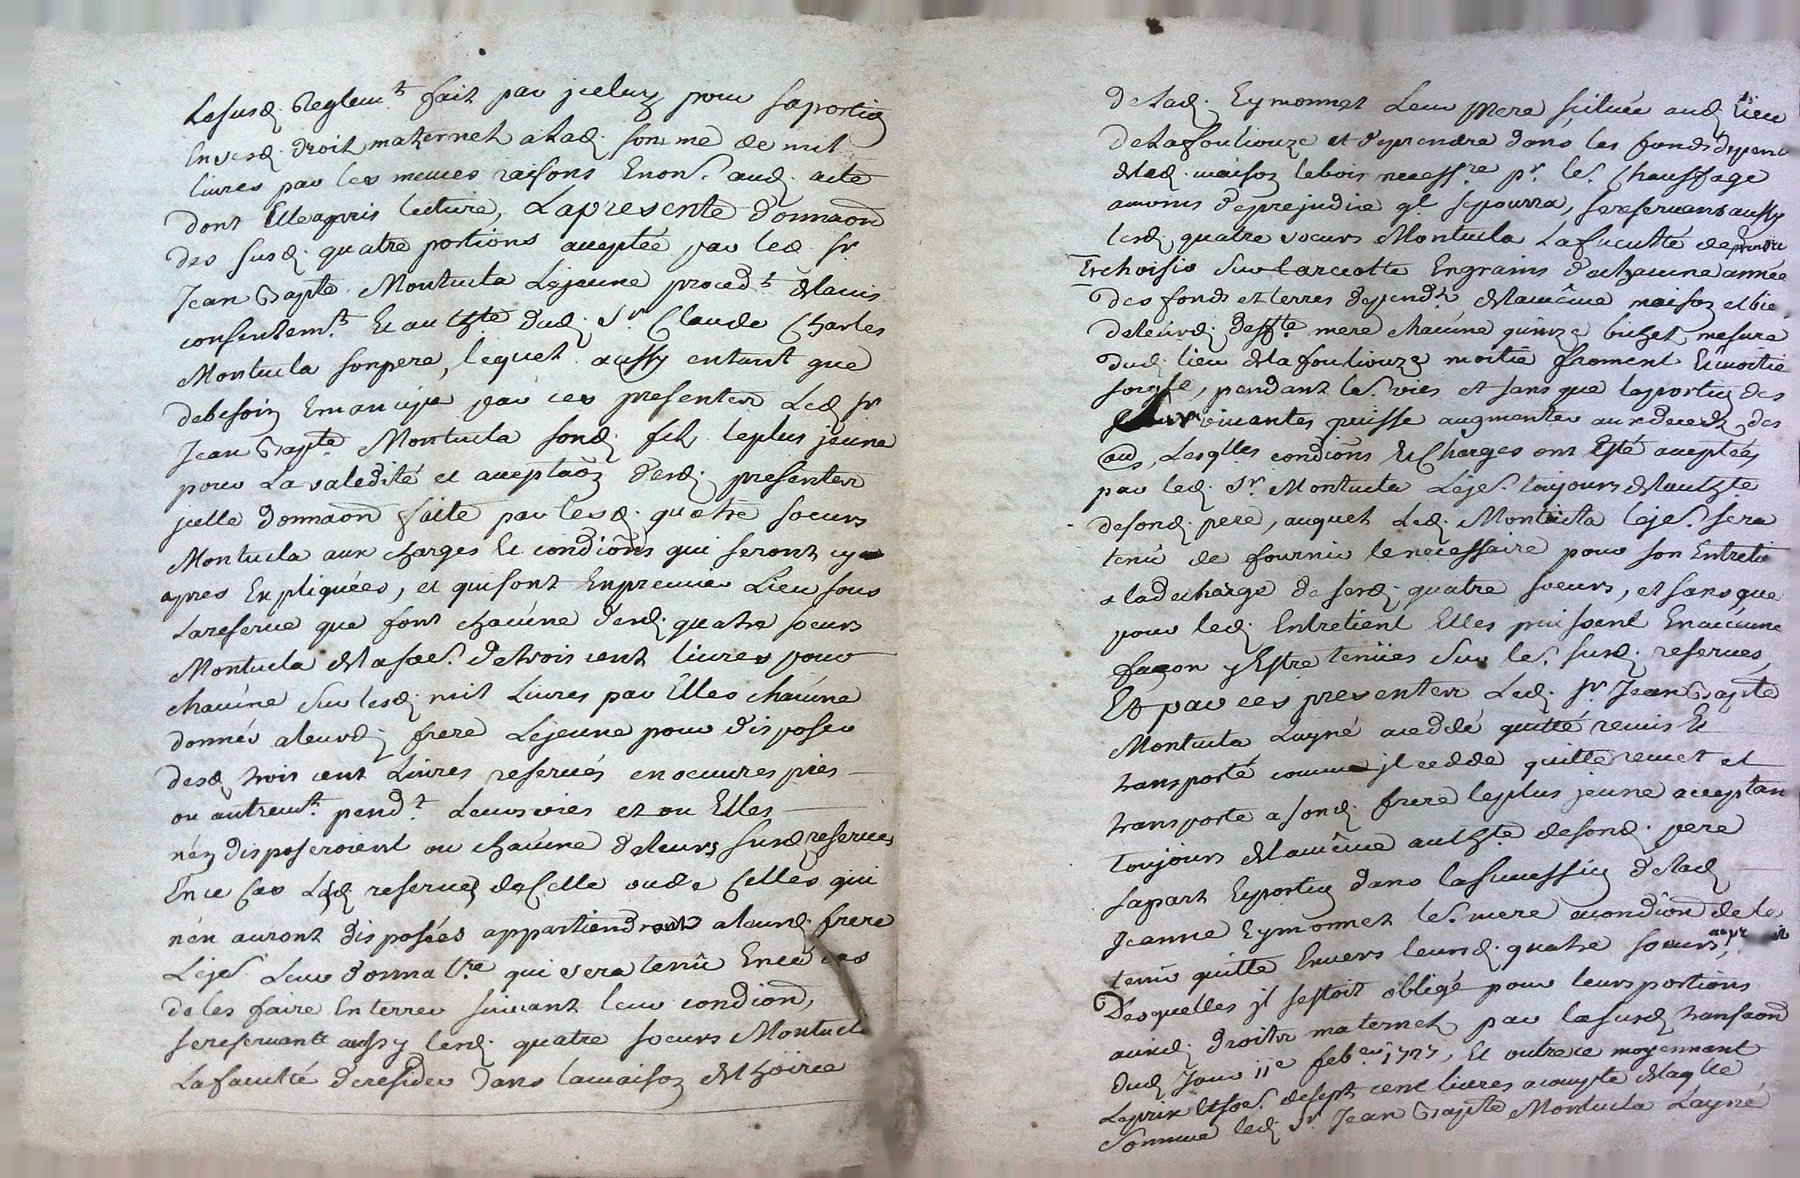 Lesusd. Reglemt. fait par jceluy pour saportion
Envesd. droit maternel alad. somme de mil
livres par les memes raisons Enon. aud. acte
dont Elle apris lecture, Lapresente donnaon
des susd. quatre portions aceptée par led. Sr.
Jean Bapte. Montucla Lejeune procedt. delavis
consentemt. Et authte. dud. Sr. Claude Charles
Montucla sonpere, lequel aussy entant que
debesoin Emancipe par ces presentes Led. Sr
Jean Bapte. Montucla sond. fils leplus jeune
pour La validité et aceptaon desd. presentes
jcelle donnaon faite par lesd. quatre soeurs
Montucla aux charges Et condions qui seront cy
apres Expliquées, et quisont Enpremier Lieu sous
Lareserve que font chacune desd. quatre soeurs
Montucla delasoe. detrois cent livres pour
chacune Sur lesd. mil Livres par Elles chacune
donnés aleurd. frere Lejeune pour disposer
desd. trois cent Livres reservés en oeuvres pies
ou autremt. pendt. Leurs vies et ou Elles
n'en disposeroient ou chacune deleurs susd. reserves
Ence Cas Lesd. reserves deCelle oude Celles qui
n'en auront disposées appartiendront aleurd. frere
Leje. Leur donnatre. qui sera tenû Ence cas
deles faire Enterrer suivant leur condion,
sereservants aussy lesd. quatre soeurs Montucla
La faculté deresider dans lamaison delhoirie
delad. Eymonnet Leur Mere scituée aud. Lieu
delafouliouze et d'yprendre dans les fonds dependt
delad. maison lebois necessre. pr. le. Chauffage
amoins deprejudice ql. sepourra, sereservans aussy
lesd. quatre soeurs Montucla La faculté deprendre
Et choisir Sur larecolte Engrains dechacune année
des fonds et terres dependts. delamême maison et bie
deleurd. deffte. mere chacune quinze bichet mesure
dud. lieu delafouliouze moitié froment Et moitié
soigle, pendant le. vies et sans que laportion des
survivantes puisse augmenter audeceds des
aus, Lesqlles condions Et Charges ont Esté aceptées
par led. Sr. Montucla Leje. toujours delauthte
desond. pere, auquel Led. Montucla leje. sera
tenû de fournir lenecessaire pour son Entretie
aladecharge de sesd. quatre soeurs, et sans que
pour led. Entretient Elles puissent Enaucune
façon y Estre tenües Sur le. susd. reserves,
Et par ces presentes Led. Sr Jean Bapte
Montucla Layné acedé quitté remis Et
transporté comme jl cedde quitte remet et
transporte a sond. frere leplus jeune aceptan
toujours delamême authte. desond. pere
Sapart Et portion dans lasuccession delad.
Jeanne Eymonnet le. mere acondion dele
tenir quitte Envers leursd. quatre soeurs,
Desquelles jl sestoit obligé pour leurs portions
auxd. droits maternels par lasusd. transaon
dud. Jour 11e. feber. 1727, Et outrece moyennant
Leprix Etsoe. desept cent livres acompte delaqlle
Somme led. Sr. Jean Bapte Montucla Layné